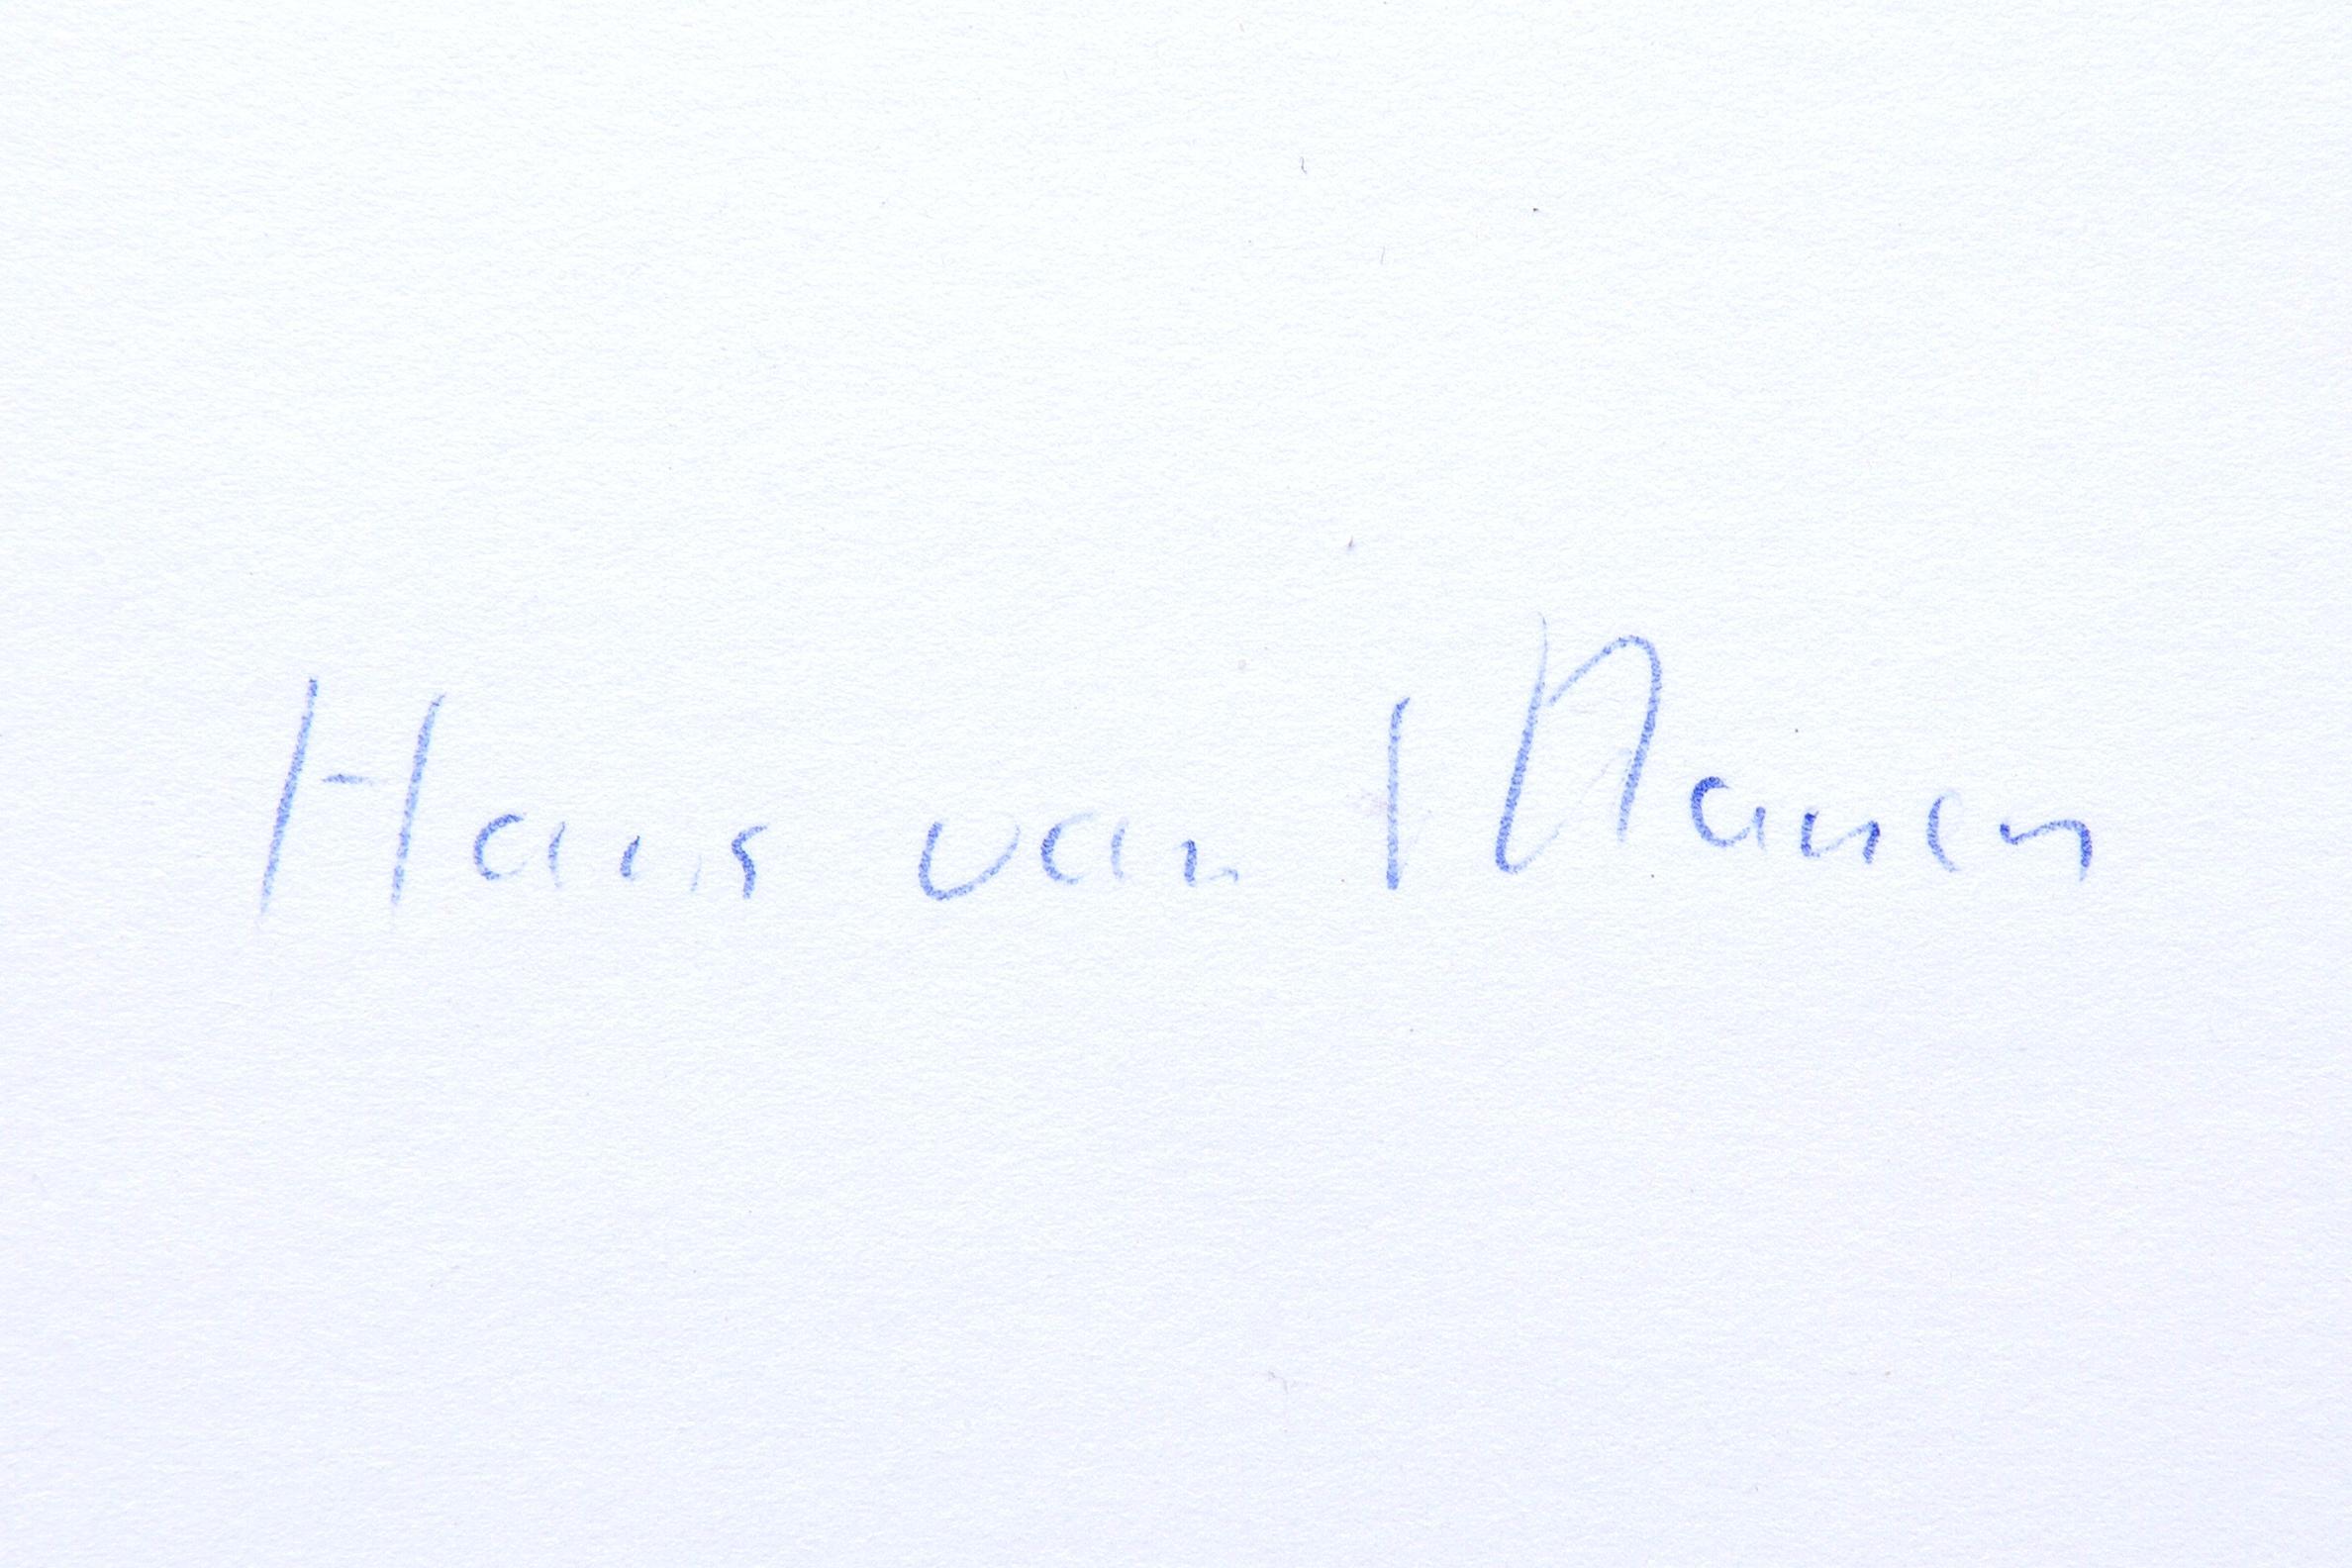 Hans van Manen